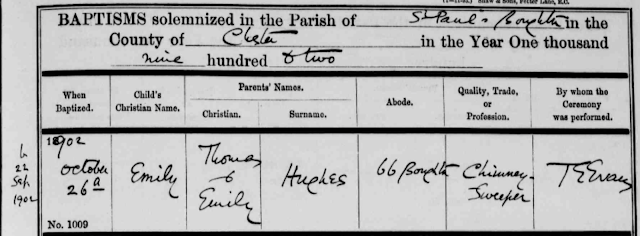 BAPTISMS solemnized in the Parish of St Paul's Boughton in the
County of Chester in the Year One thousand
nine hundred & two
When Baptized. Child's Christian Name. Parents' Names. Christian. Surname. Abode. Quality, Trade, or Profession. By whom the Ceremony was performed.
1902
October
26th
Emily
Thomas
&
Emily
Hughes
66 Boughton
Chimney-
Sweeper
T E Evans
No. 1009
b
22
Sep
1902